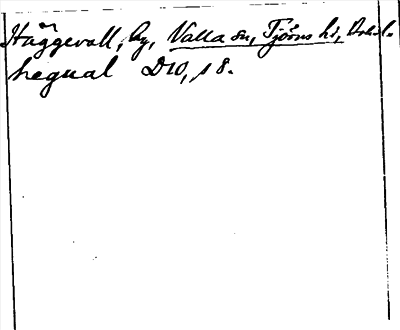 Häggevall, by, Valla sn, Tjörns hd,
hegual D10, s 8.